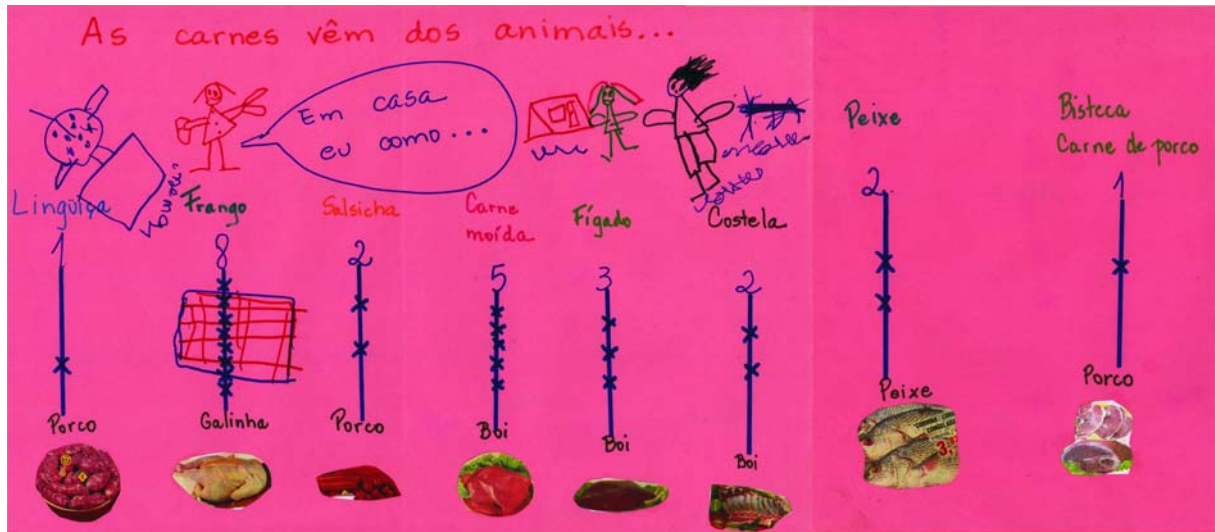 As carnes vêm dos animais...
Em casa
eu como...
Lingüiça
Frango
Salsicha
Carne
moída
Fígado
Costela
Peixe
Bisteca
Carne de porco
1
8
2
5
3
2
2
1
Porco
Galinha
Porco
Boi
Boi
Boi
Peixe
Porco